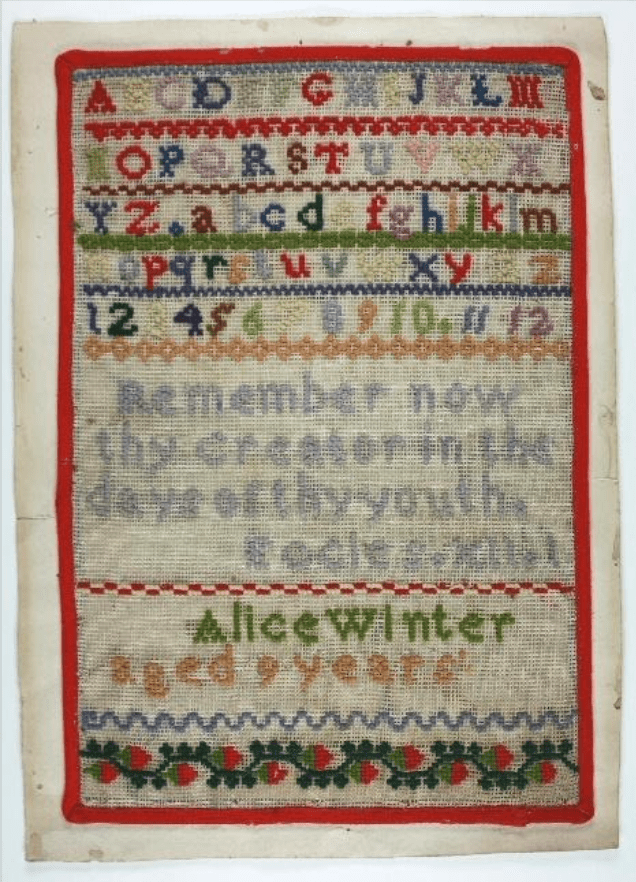 A B C D E F G H I J K L M
N O P Q R S T U V W X
Y Z . a b c d e f g h i j k l m
n o p q r s t u v w x y z
1 2 3 4 5 6 7 8 9 10. 11 12
Remember now
thy Creator in the
days of thy youth.
Eccles. XII.1
Alice Winter
aged 9 years